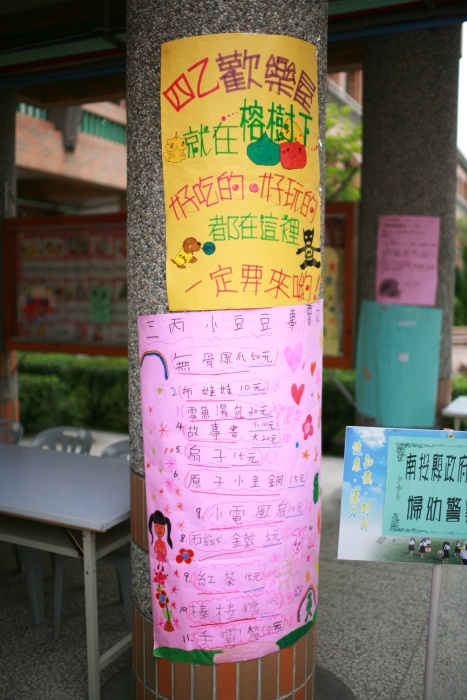 四乙歡樂屋
就在榕樹下
好吃的·好玩的
都在這裡
一定要來喲!
三丙小豆豆專賣店
無骨鳳爪50元
2.布娃娃10元
3.鱈魚湯包30元
4.故事書 小10元 大20元
5.扇子15元
6.原子小金鋼15元
7.小電風扇
8.金魚5元
9.紅茶15元
10.棒棒糖
11.手電筒10元
南投縣政府
婦幼警